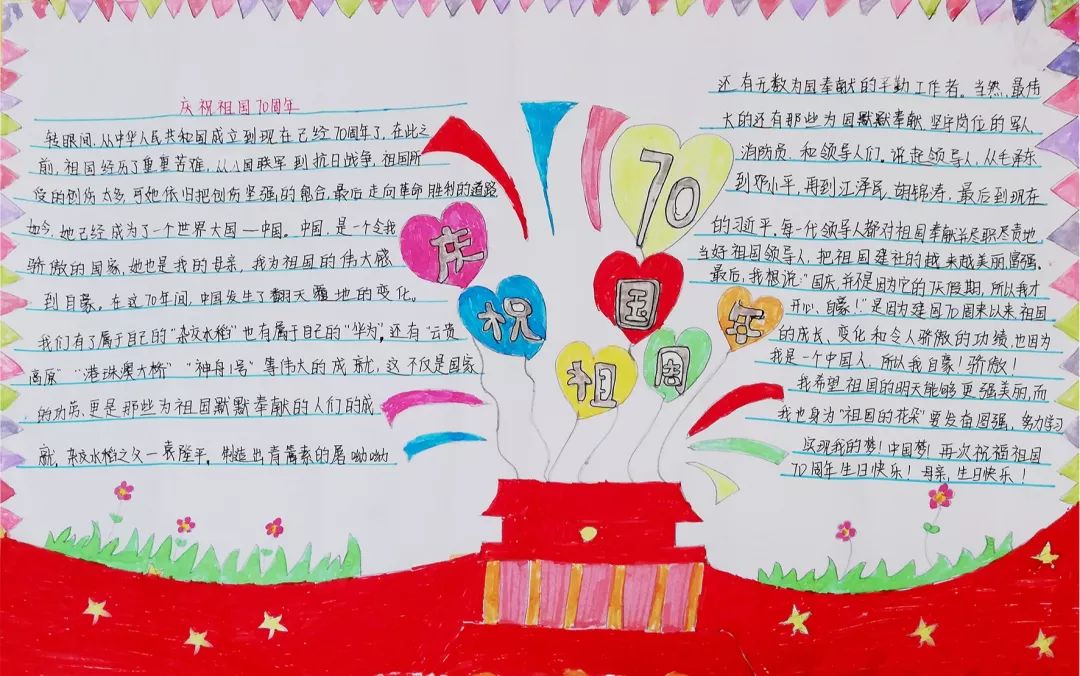 庆祝祖国70周年
转眼间,从中华人民共和国成立到现在己经70周年了,在此之
前,祖国经历了重重苦难,从八国联军到抗日战争,祖国所
受的创伤太多,可她依旧把创伤坚强的愈合,最后走向革命胜利的道路
如今,她己经成为了一个世界大国—中国。中国,是一个令我
骄傲的国家,她也是我的母亲,我为祖国的伟大感
到自豪。在这70年间,中国发生了翻天覆地的变化。
我们有了属于自己的“杂交水稻”也有属于自己的“华为”,还有“云贵
高原”“港珠澳大桥”“神舟1号”等伟大的成就,这不仅是国家
的功劳,更是那些为祖国默默奉献的人们的成
就,杂交水稻之父—袁隆平,制造出青蒿素的屠呦呦
庆
祝
祖
国
周
年
70
还有无数为国奉献的辛勤工作者。当然,最伟
大的还有那些为国默默奉献,坚守岗位的军人、
消防员,和领导人们,说起领导人,从毛泽东
到邓小平,再到江泽民,胡锦涛,最后到现在
的习近平,每一代领导人都对祖国奉献并尽职尽责地
当好祖国领导人,把祖国建社的越来越美丽,富强。
最后,我想说:“国庆,并不是因为它的7天假期,所以我才
开心、自豪!”是因为建国70周来以来,祖国
的成长、变化和令人骄傲的功绩,也因为
我是一个中国人,所以我自豪!骄傲!
我希望祖国的明天能够更强美丽,而
我也身为“祖国的花朵”要发奋图强,努力学习
实现我的梦!中国梦!再次祝福祖国
70周年生日快乐!母亲,生日快乐!